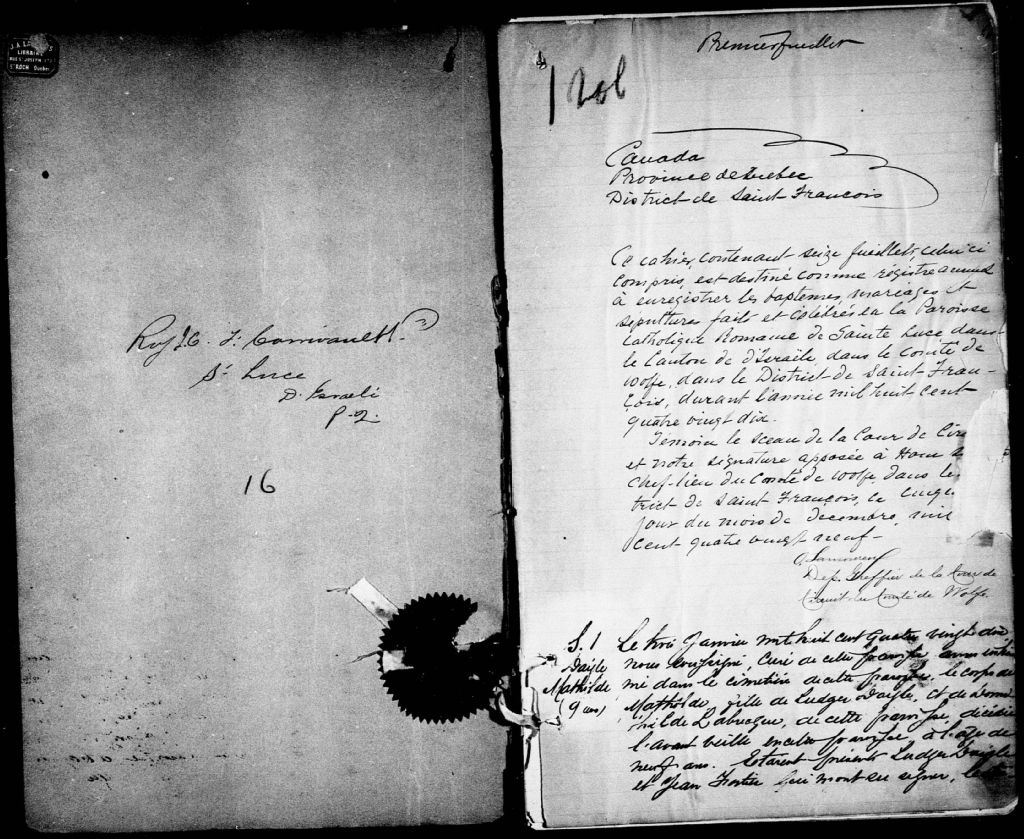 LIBRAIRE
RUE ST JOSEPH
ST ROCH Quebec
Revd J. C. F.
St Luce
D. Israeli
P. Q.
16
Premier feuillet
1 vol
Canada
Province de Quebec
District de Saint Francois
Ce cahier, contenant seize feuillets, celui ci
compris, est destiné comme régistre annuel
à enregistrer les baptemes, mariages et
sépultures faits et célébrés en la Paroisse
Catholique Romaine de Sainte Luce dans
le Canton de d'Israële dans le Comté de
Wolfe, dans le District de Saint Fran-
çois, durant l'année mil huit cent
quatre vingt dix.
Témoin le sceau de la Cour de Circ
et notre signature apposée à Ham S
Chef-lieu du Comté de Wolfe dans le
trict de Saint François, ce cinqu
jour du mois de decembre, mil
cent quatre vingt neuf-
Dep. Greffier de la Cour de
Circuit du Comté de Wolfe.
S. 1
Daigle
Mathilde
9 ans
Le troi Janvier mil huit cent quatre vingt dix
nous soussigné, Curé de cette paroisse avons inhu
mé dans le cimetière de cette paroisse, le corps de
Mathilde, fille de Ludger Daigle, et de
Labrecque, de cette paroisse, décédée
l'avant veille en cette paroisse, à l'âge de
neuf ans. Etaient présents Ludger Daigle
et Jean Fortier qui n'ont su signer,